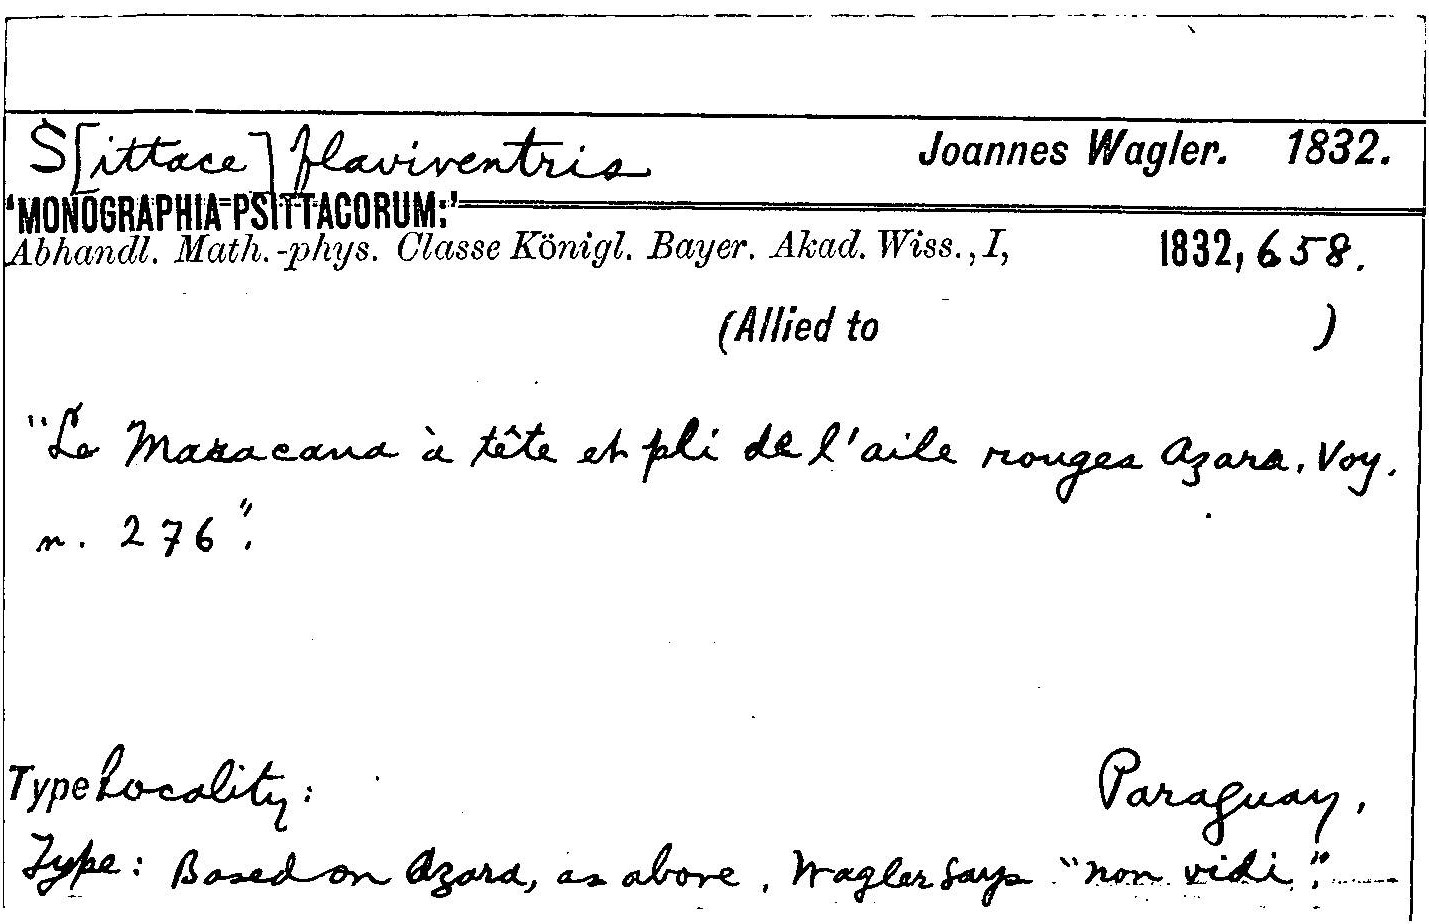 S[ittace] flaviventris Joannes Wagler. 1832.
'MONOGRAPHIA PSITTACORUM:'
Abhandl. Math.-phys. Classe Königl. Bayer. Akad. Wiss., I, 1832, 658.
(Allied to )
"Le Maracana à tête et pli de l'aile rouges Azara. Voy.
n. 276".
Type Locality: Paraguay.
Type: Based on Azara, as above. Wagler says "non vidi".